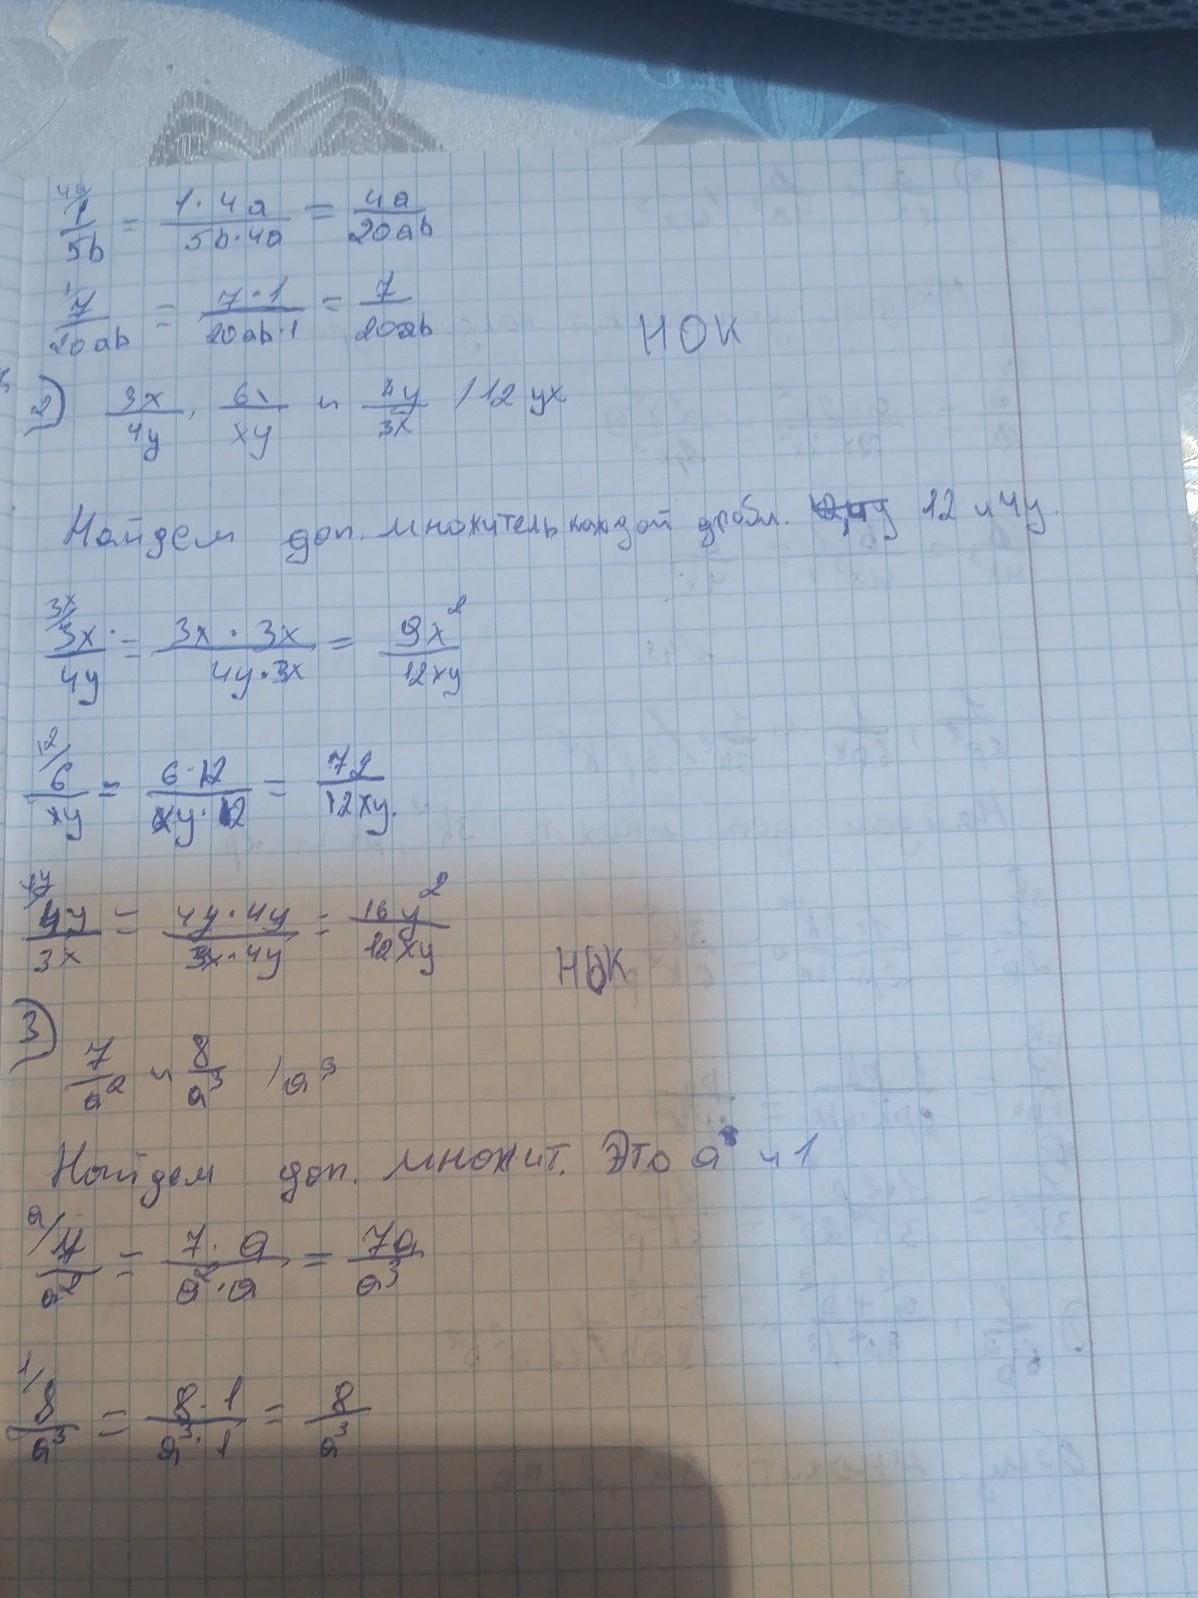 4a
1/5b = 1·4a/5b·4a = 4a/20ab
1
7/20ab = 7·1/20ab·1 = 7/20ab
НОК
2) 3x/4y, 6x/xy и 4y/3x /12 yx
Найдем доп. множитель каждой 12 и 4y.
3x/
3x/4y = 3x·3x/4y·3x = 9x²/12xy
12/
6/xy = 6·12/xy·12 = 72/12xy.
4y/
4y/3x = 4y·4y/3x·4y = 16y²/12xy
НОК
3)
7/a² и 8/a³ /a³
Найдем доп. множит. Это a и 1
a/
7/a² = 7·a/a²·a = 7a/a³
1/
8/a³ = 8·1/a³·1 = 8/a³